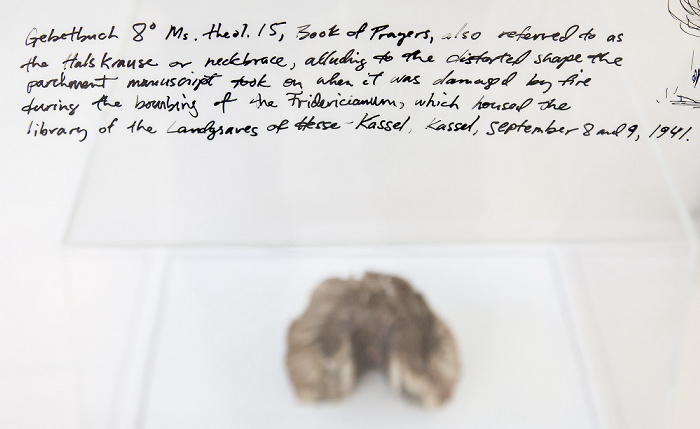 Gebetbuch 8° Ms. theol. 15, Book of Prayers, also referred to as
the Halskrause or neckbrace, alluding to the distorted shape the
parchment manuscript took on when it was damaged by fire
during the bombing of the Fridericianum, which housed the
library of the Landgraves of Hesse-Kassel, Kassel, September 8 and 9, 1941.